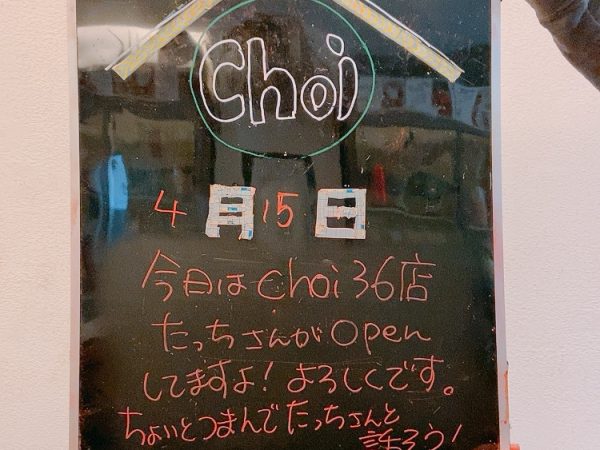 Choi
4月15日
今日はchoi36店
たっちさんがOpen
してますよ!よろしくです。
ちょいとつまんでたっちさんと
話ろう!